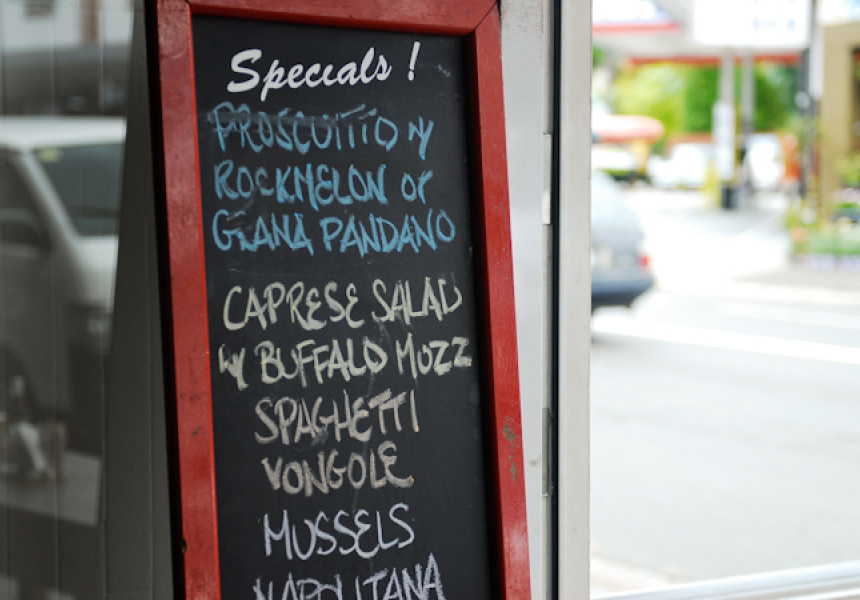 Specials !
PROSCUITTO w/
ROCKMELON or
GIANA PANDANO
CAPRESE SALAD
w/ BUFFALO MOZZ
SPAGHETTI
VONGOLE
MUSSELS
NAPOLITANA